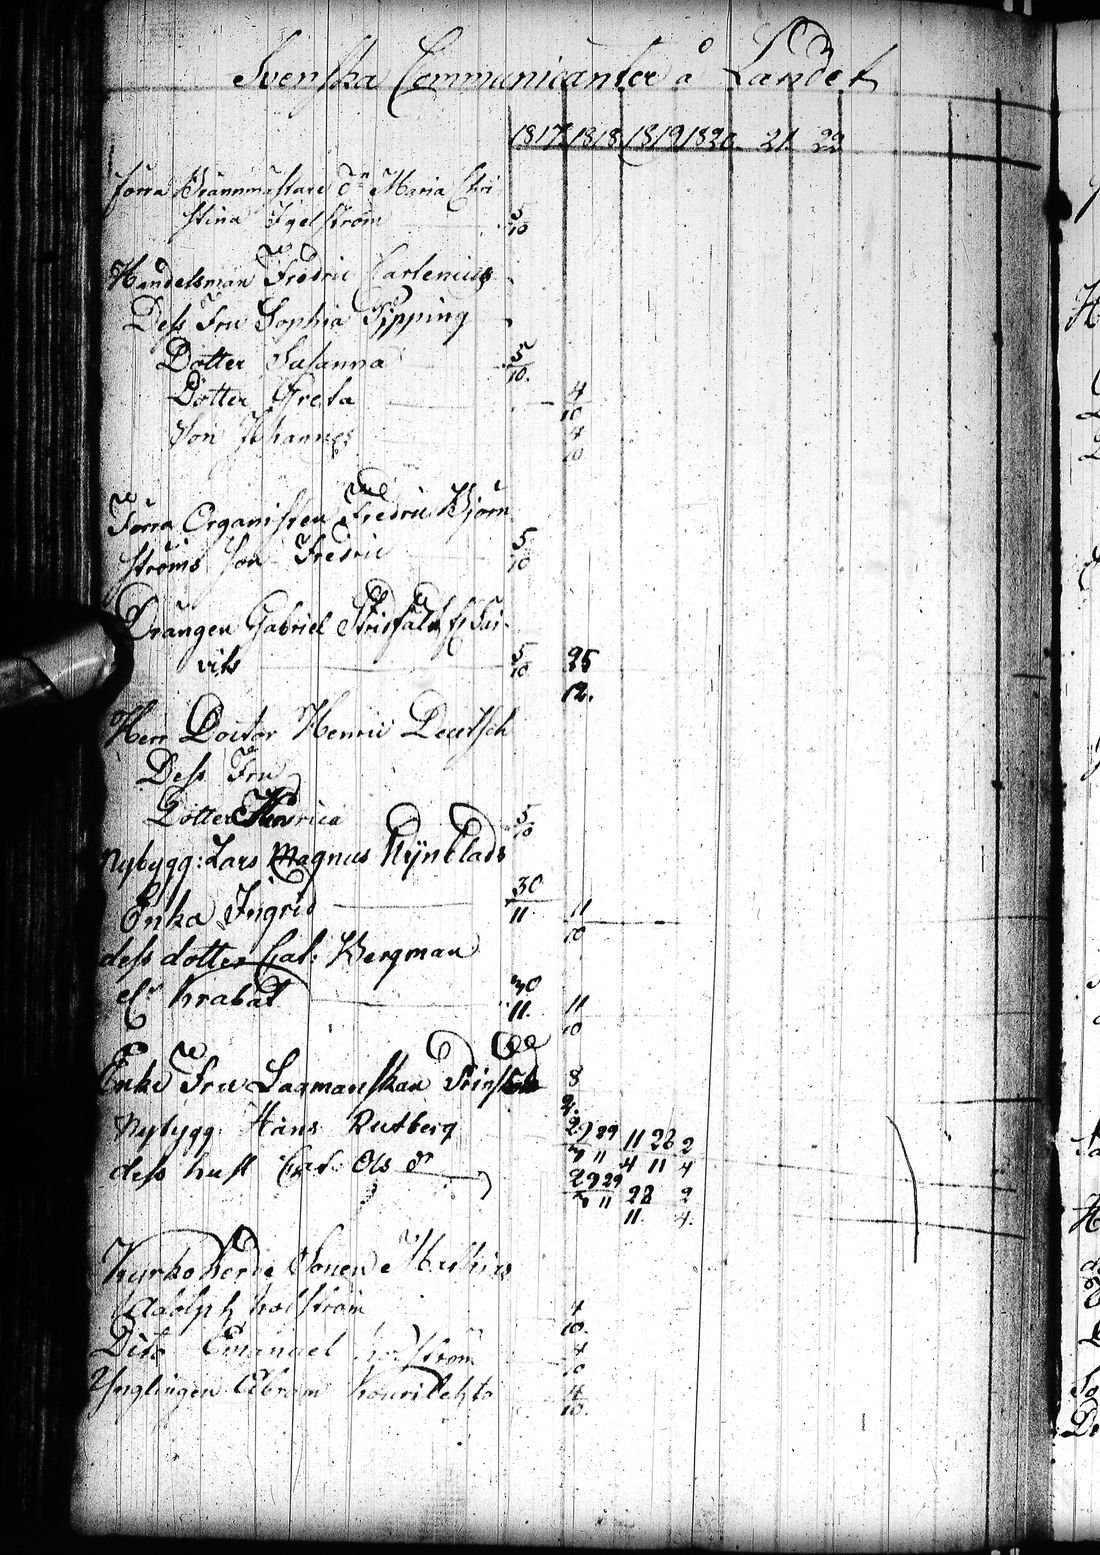 Svenska Communicanter å Landet
1817. 1818. 1819 1820. 21. 22
förra Brännmästare dr Maria Chri
stina Igelström 5/10
Handelsman Fredric Carlenius
Dess Fru Sophia Tipping
Dotter Susanna 5/10.
Dotter Greta 4/10
Son Johannes 4/10
Förra Organisten Fredric Björn
ströms Son Fredric 5/10
Drängen Gabriel
vik 5/10 25/12.
Herr Doctor Henric Deutsch
Dess Fru
Dotter Henrica 5/10
Nybygg: Lars Magnus Nijnblads
Enka Ingrid 30/11 11/10
dess dotter Cat: Bergman
el. Krabat 30/11. 11/10
Enke Fru Lagmanskan 8/2.
Nybygg. Hans Rutberg 29/7 29/11 11/4 28/11 2/4
dess hust Cat: Ols dr 29/7 29/11 28/11 2/4.
Kyrkoherde Sonen Mathias
Adolph Holström 4/10.
Dito Emanuel Holström 4/10
Ynglingen Abram Kourilehto 4/10.